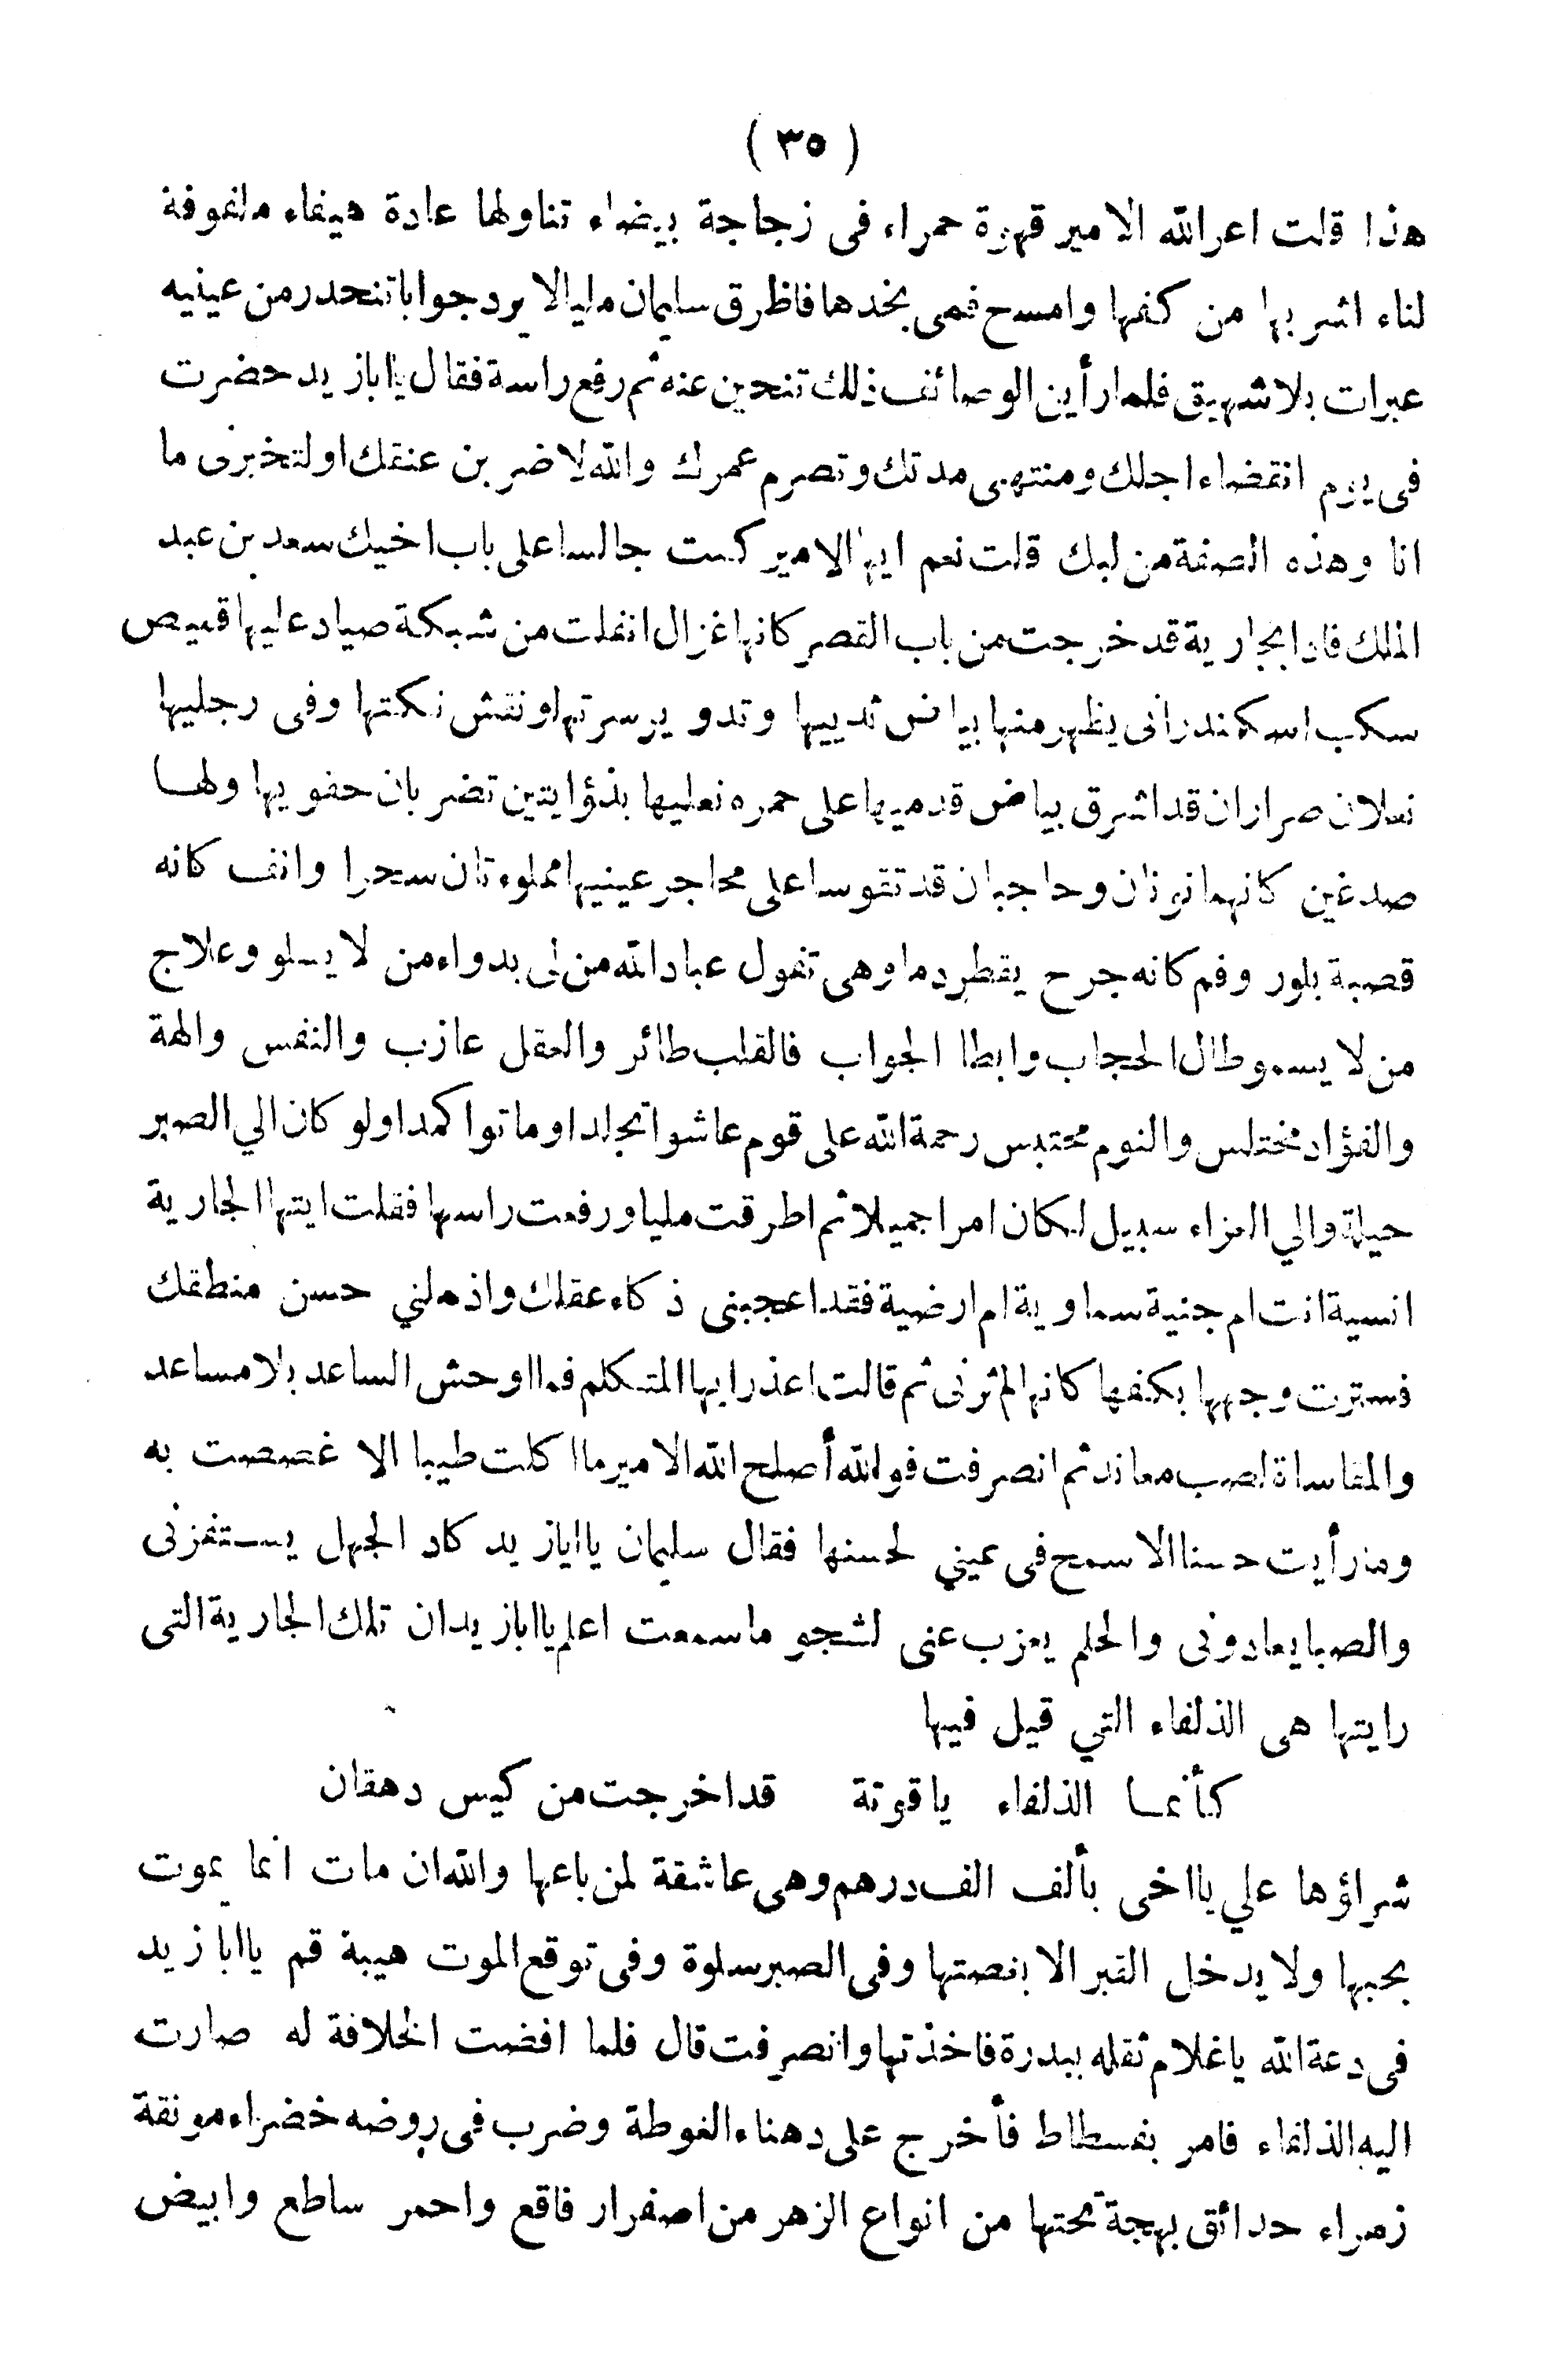 ( ٣٥ )
هذا قلت اعز الله الامير قهوة حمراء فى زجاجة بيضاء تناولها غادة هيفاء ملفوفة
لفاء اشربها من كفها وامسح فمى بخدها فاطرق سليمان مليالا يرد جوابا تنحدر من عينيه
عبرات بلا شهيق فلما رأين الوصائف ذلك تنحين عنه ثم رفع راسة فقال يااباز يد حضرت
فى يوم انقضاء اجلك ومنتهى مدتك وتصرم عمرك والله لاضربن عنقك اولتخبرنى ما
انا وهذه الصفة من لبك قلت نعم ايها الامير كنت جالسا على باب اخيك سعد بن عبد
الملك فاذا بجارية قد خرجت من باب القصر كانها غزال انفلت من شبكة صياد عليها قميص
سكب اسكندرانى يظهر منها بياض ثدييها وتدوير سرتها ونقش نكتها وفى رجليها
نعلان صراران قد اشرق بياض قدميها على حمره نعليها بذؤابتين تضربان حقويها ولها
صدغين كانهما نونان وحاجبان قد تقوسا على محاجر عينيها مملوءتان سحرا وانف كانه
قصبة بلور وفم كانه جرح يقطر دما وهى تقول عباد الله من لى بدواء من لا يسلو وعلاج
من لا يسمو طال الحجاب وابطا الجواب فالقلب طائر والعقل عازب والنفس والهة
والفؤاد مختلس والنوم محتبس رحمة الله على قوم عاشوا تجلدا وماتوا كمدا ولو كان الي الصبر
حيلة والي العزاء سبيل لكان امرا جميلا ثم اطرقت مليا ورفعت راسها فقلت ايتها الجارية
انسية انت ام جنية سماوية ام ارضية فقد اعجبنى ذكاء عقلك واذهلني حسن منطقك
فسترت وجهها بكفها كانها لم ترنى ثم قالت اعذر ايها المتكلم فما اوحش الساعد بلا مساعد
والمقاساة لصب معاند ثم انصرفت فوالله أصلح الله الامير ما اكلت طيبا الا غصصت به
ومذ رأيت حسنا الا سمج فى عيني لحسنها فقال سليمان يااباز يد كاد الجهل يستفزنى
والصبا يعادونى والحلم يعزب عنى لشجو ما سمعت اعلم يااباز يد ان تلك الجارية التى
رايتها هى الذلفاء التي قيل فيها
كأنما الذلفاء ياقوتة قد اخرجت من كيس دهقان
شراؤها علي يااخى بألف الف درهم وهى عاشقة لمن باعها والله ان مات انما يموت
بحبها ولا يدخل القبر الا بغصتها وفى الصبر سلوة وفى توقع الموت هيبة قم ياابا زيد
فى دعة الله ياغلام ثقله ببدرة فاخذتها وانصرفت قال فلما افضت الخلافة له صارت
اليه الذلفاء فامر بفسطاط فأخرج على دهناء الغوطة وضرب فى روضه خضراء مونقة
زهراء حدائق بهجة تحتها من انواع الزهر من اصفرار فاقع واحمر ساطع وابيض